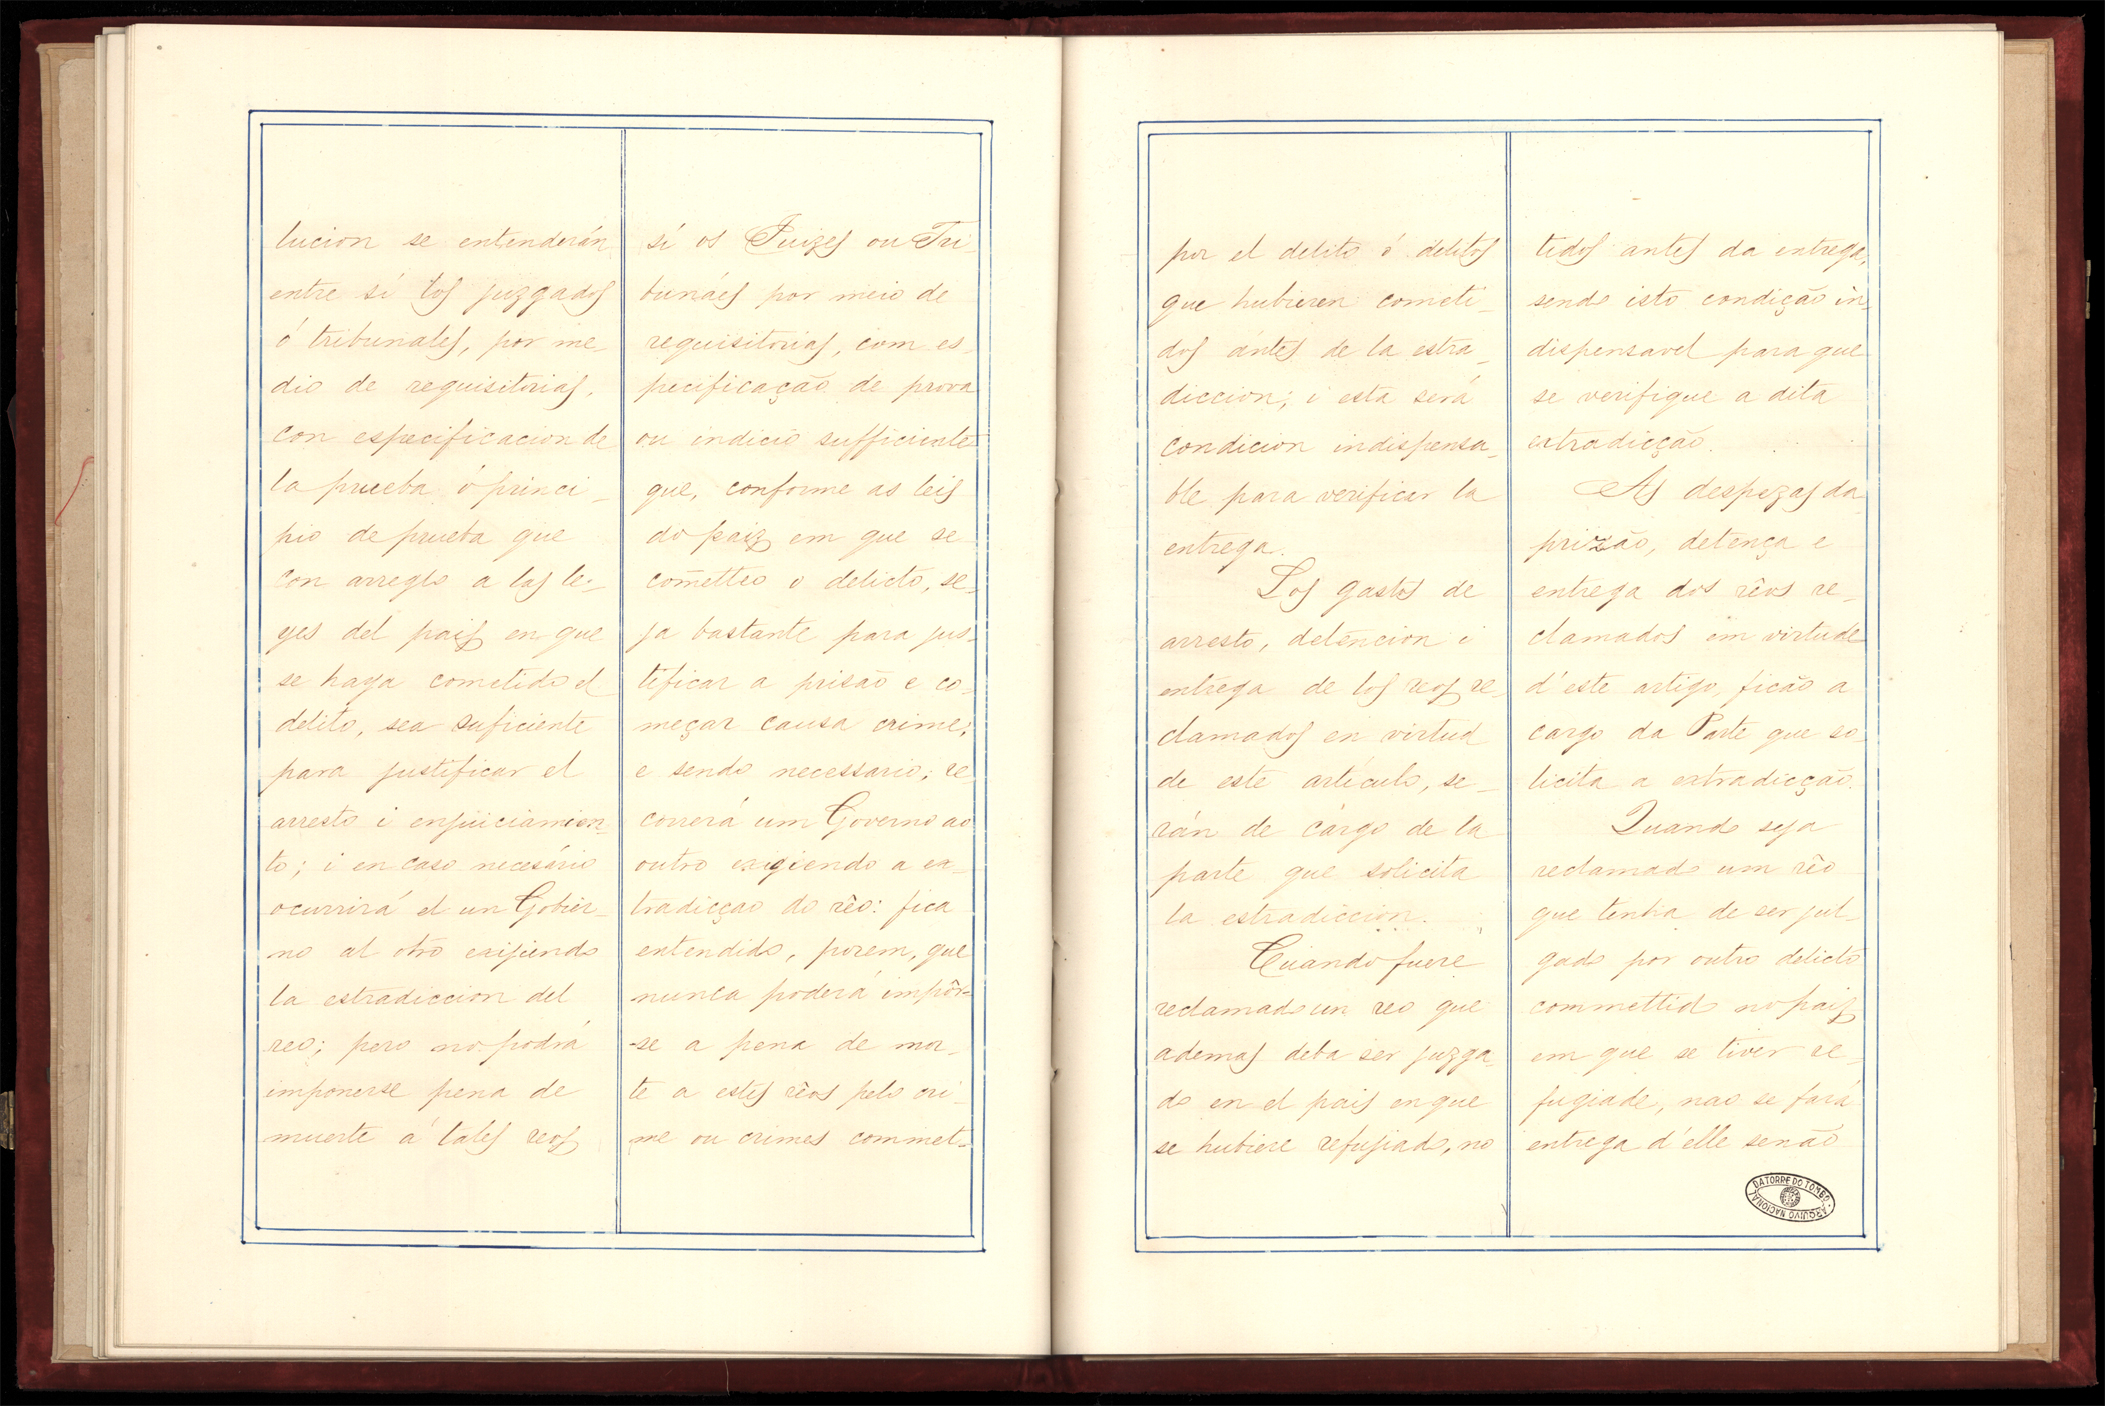 lucion se entenderán
entre sí los juzgados
ó tribunales, por me_
dio de requisitorias,
con especificacion de
la prueba ó princi_
pio de prueba que
con arreglo a las le_
yes del pais en que
se haya cometido el
delito, sea suficiente
para justificar el
arresto i enjuiciamien_
to; i en caso necesário
ocurrirá el un Gobier_
no al otro exijiendo
la estradiccion del
reo; pero no podrá
imponerse pena de
muerte á tales reos
sí os Juizes ou Tri_
bunáes por meio de
requisitorias, com es_
pecificação de prova
ou indicio sufficiente
que, conforme as leis
do paiz em que se
cometteo o delicto, se_
ja bastante para jus_
tificar a prisão e co_
meçar causa crime;
e sendo necessario, re
correrá um Governo ao
outro exigiendo a ex_
tradicçao do rêo: fica
entendido, porem, que
nunca poderá impôr-
-se a pena de mor_
te a estes rêos pelo cri_
me ou crimes commet_
por el delito ó delitos
que hubieren cometi_
dos ántes de la estra_
diccion; i esta será
condicion indispensa_
ble para verificar la
entrega.
Los gastos de
arresto, detencion i
entrega de los reos re_
clamados en virtud
de este artículo, se_
rán de cárgo de la
parte que solicita
la estradiccion.
Cuando fuere
reclamado un reo que
ademas deba ser juzga_
do en el pais en que
se hubiere refujiado, no
tidos antes da entrega,
sendo isto condição in_
dispensavel para que
se verifique a dita
extradicção.
As despezas da
prizão, detença e
entrega dos rêos re_
clamados em virtude
d'este artigo, ficão a
cargo da Parte que so_
licita a extradicção.
Quando seja
reclamado um rêo
que tenha de ser jul_
gado por outro delicto
commettido no paiz
em que se tiver re_
fugiado, nao se fará
entrega d'elle senão
DA TORRE DO TOMBO · ARQUIVO NACIONAL